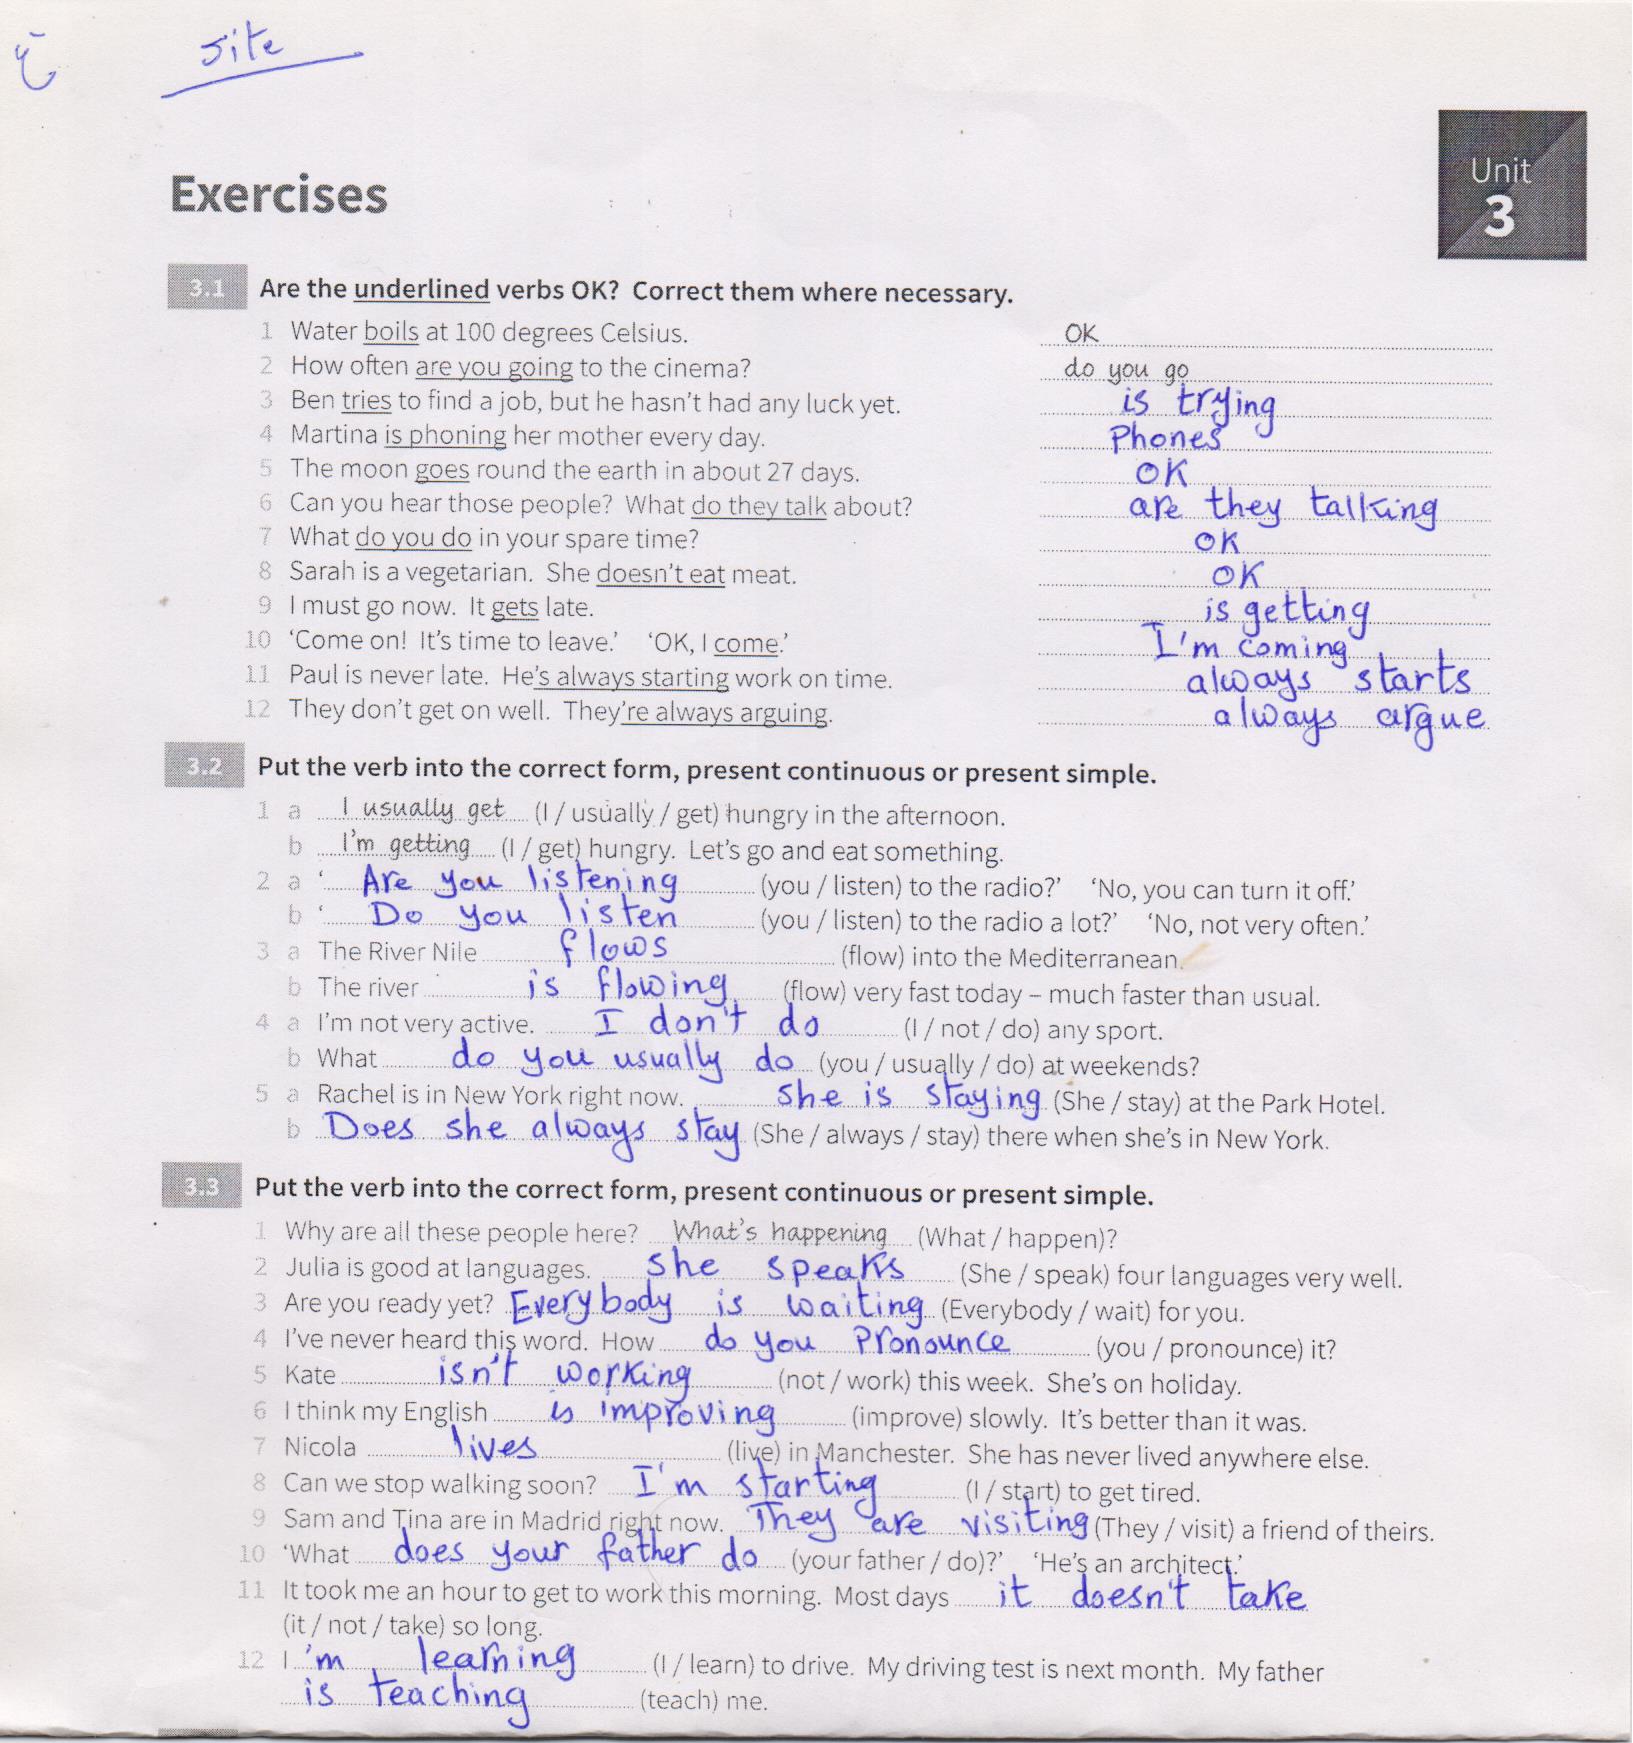 site
Unit
3
Exercises
3.1 Are the underlined verbs OK? Correct them where necessary.
1 Water boils at 100 degrees Celsius. OK
2 How often are you going to the cinema? do you go
3 Ben tries to find a job, but he hasn't had any luck yet. is trying
4 Martina is phoning her mother every day. Phones
5 The moon goes round the earth in about 27 days. OK
6 Can you hear those people? What do they talk about? are they talking
7 What do you do in your spare time? OK
8 Sarah is a vegetarian. She doesn't eat meat. OK
9 I must go now. It gets late. is getting
10 'Come on! It's time to leave.' 'OK, I come.' I'm coming
11 Paul is never late. He's always starting work on time. always starts
12 They don't get on well. They're always arguing. always argue
3.2 Put the verb into the correct form, present continuous or present simple.
1 a I usually get (I / usually / get) hungry in the afternoon.
b I'm getting (I / get) hungry. Let's go and eat something.
2 a 'Are you listening (you / listen) to the radio?' 'No, you can turn it off.'
b 'Do you listen (you / listen) to the radio a lot?' 'No, not very often.'
3 a The River Nile flows (flow) into the Mediterranean.
b The river is flowing (flow) very fast today – much faster than usual.
4 a I'm not very active. I don't do (I / not / do) any sport.
b What do you usually do (you / usually / do) at weekends?
5 a Rachel is in New York right now. She is staying (She / stay) at the Park Hotel.
b Does she always stay (She / always / stay) there when she's in New York.
3.3 Put the verb into the correct form, present continuous or present simple.
1 Why are all these people here? What's happening (What / happen)?
2 Julia is good at languages. She speaks (She / speak) four languages very well.
3 Are you ready yet? Everybody is waiting (Everybody / wait) for you.
4 I've never heard this word. How do you Pronounce (you / pronounce) it?
5 Kate isn't working (not / work) this week. She's on holiday.
6 I think my English is improving (improve) slowly. It's better than it was.
7 Nicola lives (live) in Manchester. She has never lived anywhere else.
8 Can we stop walking soon? I'm starting (I / start) to get tired.
9 Sam and Tina are in Madrid right now. They are visiting (They / visit) a friend of theirs.
10 'What does your father do (your father / do)?' 'He's an architect.'
11 It took me an hour to get to work this morning. Most days it doesn't take
(it / not / take) so long.
12 I 'm learning (I / learn) to drive. My driving test is next month. My father
is teaching (teach) me.